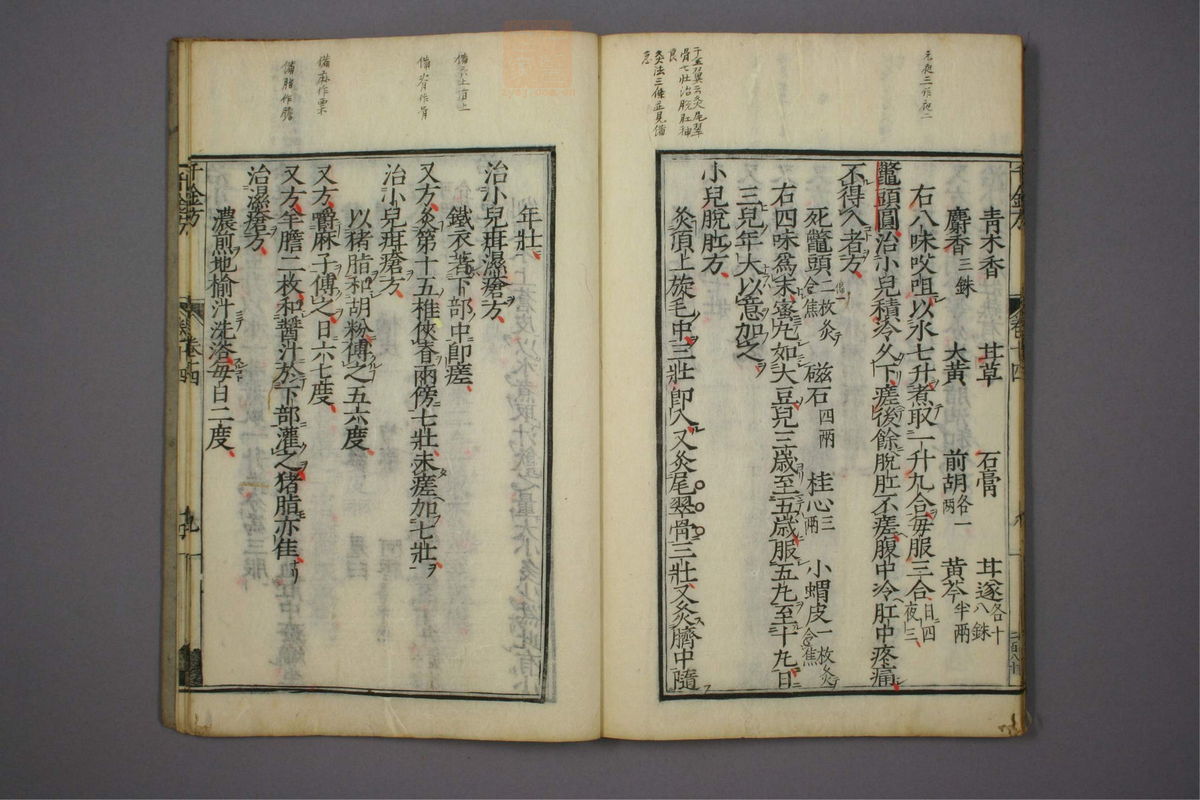 千金翼云灸尾翠
骨七壯治脫肛神
良
灸法三條並見備
急
青木香 甘草 石膏 甘遂各十八銖
麝香三銖 大黃 前胡各一兩 黃芩半兩
右八味㕮咀以水七升煮取一升九合每服三合日四夜三
鱉頭圓治小兒積冷久下瘥後餘脫肛不瘥腹中冷肛中疼痛
不得入者方
死鱉頭二枚灸令焦 磁石四兩 桂心三兩 小蝟皮一枚灸令焦
右四味爲末蜜丸如大豆兒三歲至五歲服五丸至十丸日
三兒年大以意加之
小兒脫肛方
灸頂上旋毛中三壯即入又灸尾翠骨三壯又灸臍中隨
年壯
治小兒疳濕瘡方
鐵衣著下部中即瘥
又方灸第十五椎俠脊兩傍七壯未瘥加七壯
治小兒疳瘡方
以猪脂和胡粉傅之五六度
又方嚼麻子傅之日六七度
又方羊膽二枚和醬汁於下部灌之猪脂亦佳
治濕瘡方
濃煎地榆汁洗浴每日二度
千金方
卷十四
二百八十
千金方
卷十四